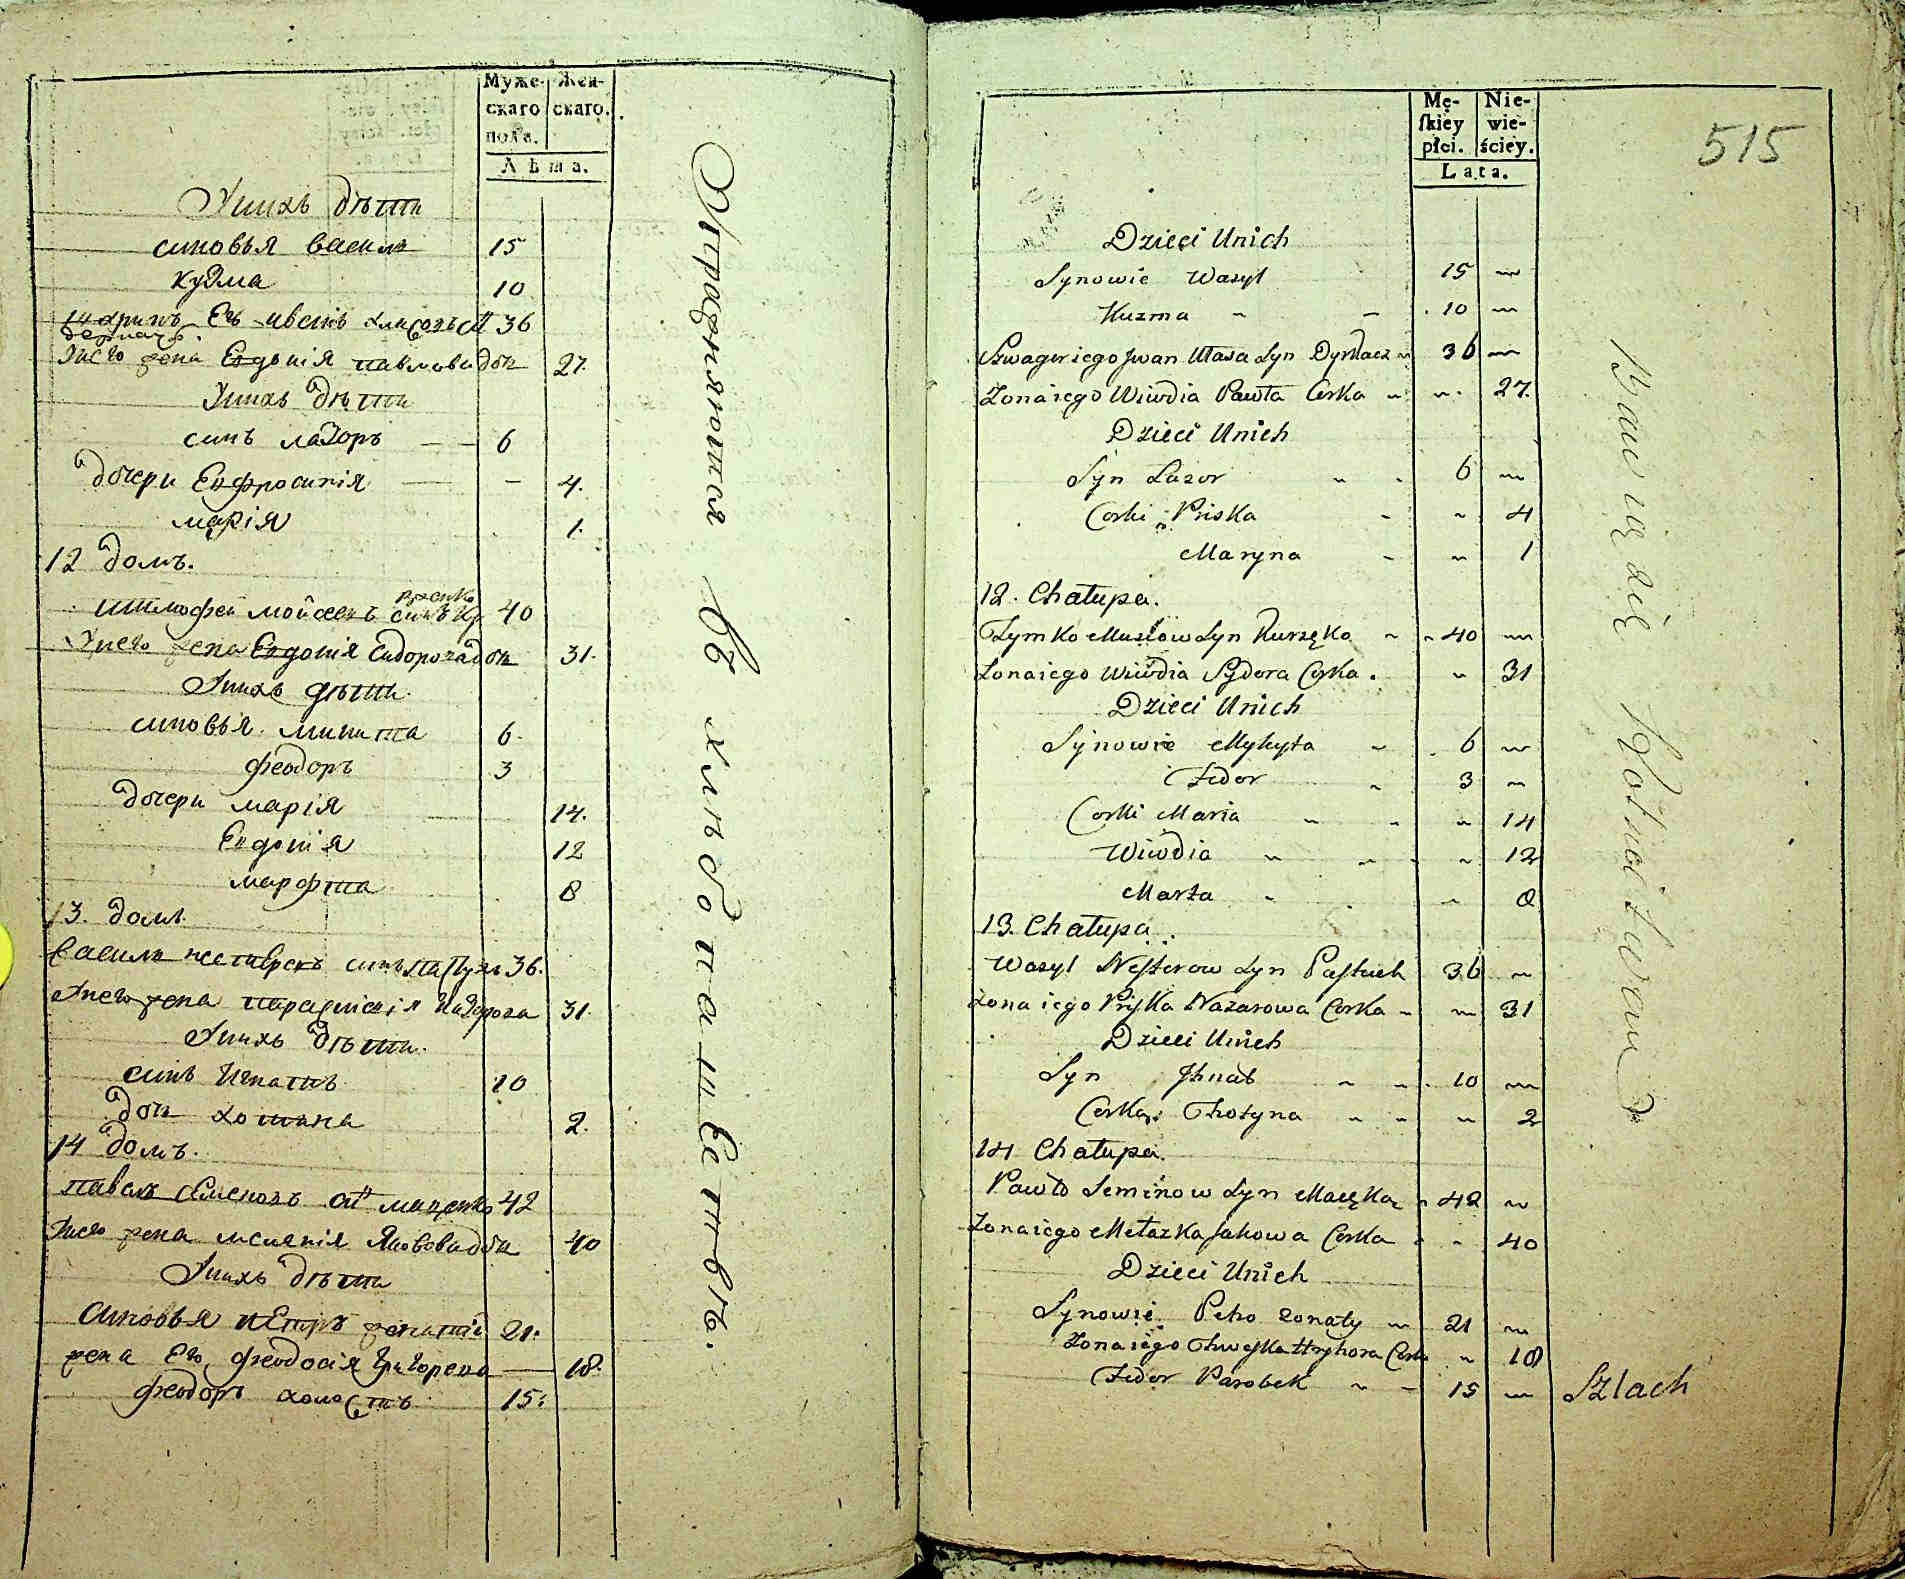 Муже-
скаго
пола.
Жен-
скаго.
Лѣта.
Унихъ дѣти
синовья василь 15
кузма 10
шуринъ Его 36
Унего жена Евдокія павлова дочь 27.
Унихъ дѣти
синъ лазоръ 6
дочери Евфросинія 4.
марія 1.
12 домъ.
тимофей мойсеевъ синъ 40
Унего жена Евдокія Сидорова дочь 31.
Унихъ дѣти.
синовья микита 6.
феодоръ 3
дочери марія 14.
Евдокія 12
марфта 8
13. домъ.
василь нестеревъ синъ пастухъ 36.
Унего жена параскевія Назорова 31.
Унихъ дѣти.
синъ Игнатъ 10
дочь хотина 2.
14 домъ.
павелъ Семеновъ сiн маценко 42
Унего жена меланія Яковова дочь 40
Унихъ дѣти
Синовья петръ женатій 21.
жена Его феодосія Григорева 18.
феодоръ холостъ 15:
Упражняются въ хлибопашествѣ.
Mę-
skiey
płci.
Nie-
wie-
ściey.
Lata.
515
Dzieci Unich
Synowie Wasyl 15 ~
Kuzma ~ ~ 10 ~
Szwagier iego Jwan Ułasa Syn Dyrkacz ~ 36 ~
Żona iego Wiwdia Pawła Corka ~ ~ 27.
Dzieci Unich
Syn Łazor ~ ~ 6 ~
Corki Priska ~ ~ 4
Maryna ~ ~ 1
12. Chałupa.
Tymko Musiow Syn Kurzęko ~ ~ 40 ~
Żona iego Wiwdia Sydora Corka . ~ 31
Dzieci Unich
Synowie Mykyta ~ 6 ~
Fedor ~ 3 ~
Corki Maria ~ ~ ~ 14
Wiwdia ~ ~ ~ 12
Marta ~ ~ 8
13. Chałupa.
Wasyl Nesterow Syn Pastuch 36 ~
Żona iego Priska Nazarowa Corka ~ ~ 31
Dzieci Unich
Syn Jhnat ~ ~ 10 ~
Corka Chotyna ~ ~ ~ 2
14 Chałupa.
Pawło Seminow Syn Macęka ~ 42 ~
Żona iego Mełazka Jakowa Corka ~ ~ 40
Dzieci Unich
Synowie Petro zonaty ~ 21 ~
Żona iego Chweska Hryhora Corka ~ 18
Fedor Parobek ~ ~ 15 ~ Szlach
Bawią się